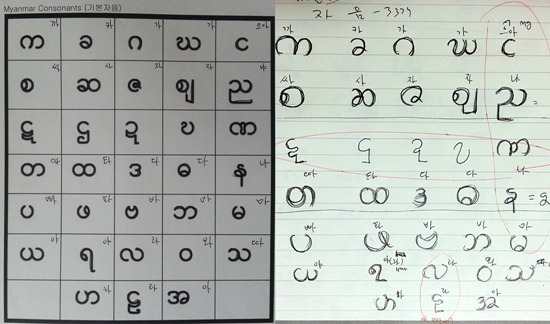 Myanmar Consonants (기본자음)
까 카 가 가
က ခ ဂ ဃ င
싸 사 자 자 냐
စ ဆ ဇ ဈ ည
ဋ ဌ ဍ ဎ ဏ
따 타 다 다 나
တ ထ ဒ ဓ န
빠 파 바 바 마
ပ ဖ ဗ ဘ မ
야 야 라 와 따
ယ ရ လ ဝ သ
하 라 아
ဟ ဠ အ
자 음 - 33개
까 카 가 가
က ခ ဂ ဃ င
싸 사 자 자 냐
စ ဆ ဇ ဈ ည =
ဋ ဌ ဍ ဎ ဏ
따 타 다 다 나
တ ထ ဒ ဓ န =
빠 파 바 바 마
ပ ဖ ဗ ဘ မ
ယ ရ လ ဝ သ
ဟ ဠ အ